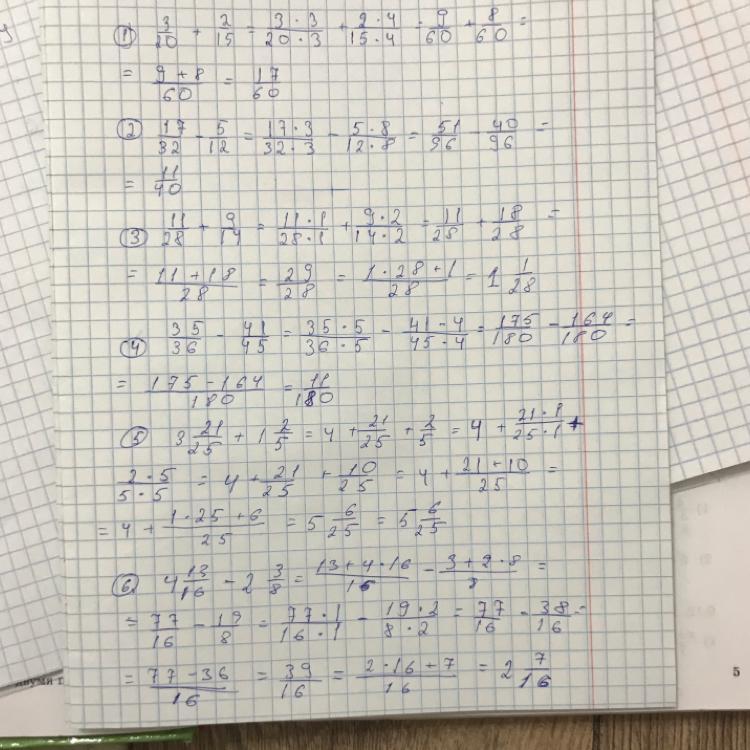 ① 3/20 + 2/15 = 3·3/20·3 + 2·4/15·4 = 9/60 + 8/60 =
= 9+8/60 = 17/60
② 17/32 - 5/12 = 17·3/32·3 - 5·8/12·8 = 51/96 - 40/96 =
= 11/40
③ 11/28 + 9/14 = 11·1/28·1 + 9·2/14·2 = 11/28 + 18/28 =
= 11+18/28 = 29/28 = 1·28+1/28 = 1 1/28
④ 35/36 - 41/45 = 35·5/36·5 - 41-4/45·4 = 175/180 - 164/180 =
= 175-164/180 = 11/180
⑤ 3 21/25 + 1 2/5 = 4 + 21/25 + 2/5 = 4 + 21·1/25·1 +
2·5/5·5 = 4 + 21/25 + 10/25 = 4 + 21+10/25 =
= 4 + 1·25+6/25 = 5 6/25 = 5 6/25
⑥ 4 13/16 - 2 3/8 = 13+4·16/16 - 3+2·8/8 =
= 77/16 - 19/8 = 77·1/16·1 - 19·2/8·2 = 77/16 - 38/16 =
= 77-36/16 = 39/16 = 2·16+7/16 = 2 7/16
5